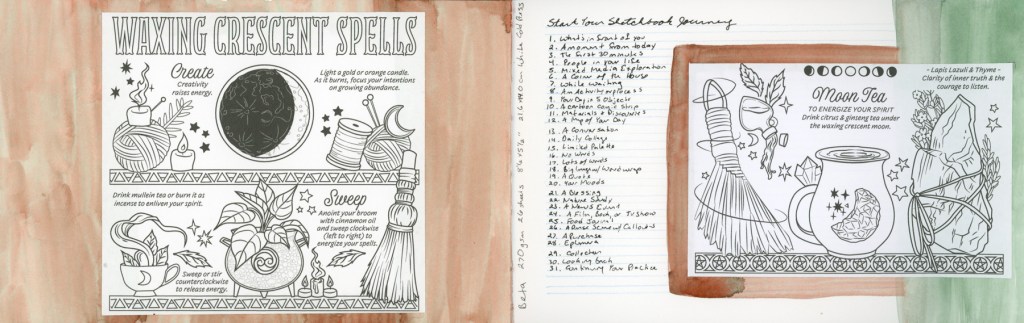 WAXING CRESCENT SPELLS
Create
Creativity
raises energy.
Light a gold or orange candle.
As it burns, focus your intentions
on growing abundance.
Drink mullein tea or burn it as
incense to enliven your spirit.
Sweep
Anoint your broom
with cinnamon oil
and sweep clockwise
(left to right) to
energize your spells.
Sweep or stir
counterclockwise
to release energy.
Beta 270gsm 26 sheets
Start Your Sketchbook Journey
1. What's in front of you
2. A moment from today
3. The first 30 minutes
4. People in your life
5. Mixed Media Exploration
6. A Corner of the House
7. While waiting
8. An Activity or process
9. Your Day in 5 Objects
10. A cartoon comic strip
11. Materials & Discoveries
12. A Map of Your Day
13. A Conversation
14. Daily Collage
15. Limited Palette
16. No Words
17. Lots of Words
18. Big Image w/ Word wrap
19. A Quote
20. Your Moods
21. A Blessing
22. Nature Study
23. A News Event
24. A Film, Book, or TV Show
25. Food Journal
26. A Scene w/ Callouts
27. A Purchase
28. Ephemera
29. Collection
30. Looking back
31. Continuing Your Practice
Moon Tea
TO ENERGIZE YOUR SPIRIT
Drink citrus & ginseng tea under
the waxing crescent moon.
- Lapis Lazuli & Thyme -
Clarity of inner truth & the
courage to listen.